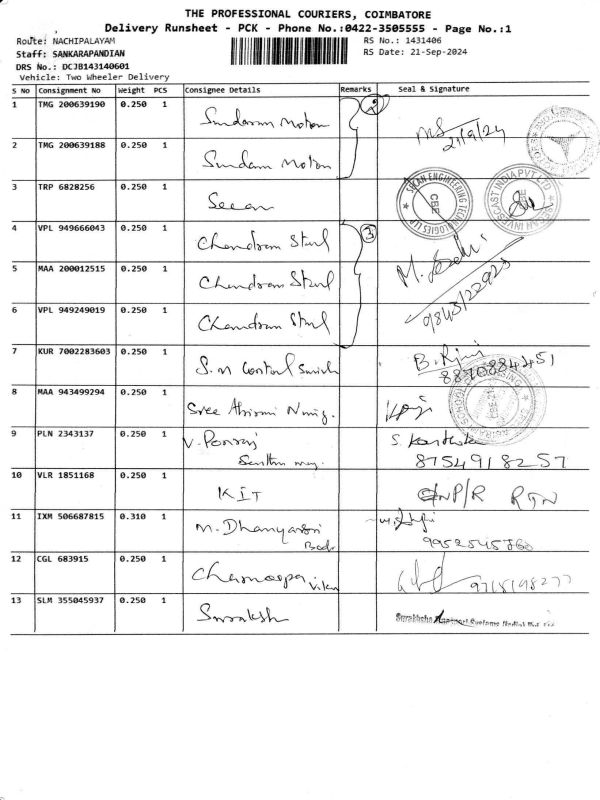 THE PROFESSIONAL COURIERS, COIMBATORE
Delivery Runsheet - PCK - Phone No.:0422-3505555 - Page No.:1
Route: NACHIPALAYAM
RS No.: 1431406
Staff: SANKARAPANDIAN
RS Date: 21-Sep-2024
DRS No.: DCJB143140601
Vehicle: Two Wheeler Delivery
S No Consignment No Weight PCS Consignee Details Remarks Seal & Signature
1 TMG 200639190 0.250 1 Sundaram Motor 2
21/9/24
2 TMG 200639188 0.250 1 Sundaram Motor
3 TRP 6828256 0.250 1 Secan
SECAN ENGINEERING TECHNOLOGIES LLP CBE
SECAN INVESCAST INDIA PVT LTD CBE
4 VPL 949666043 0.250 1 Chandram Steel 3
5 MAA 200012515 0.250 1 Chandram Steel
9843122923
6 VPL 949249019 0.250 1 Chandram Steel
7 KUR 7002283603 0.250 1 S.N Control Switch
8870884451
8 MAA 943499294 0.250 1 Sree Abirami Nursing.
9 PLN 2343137 0.250 1 V. Ponraj
S. Karthika
8754918257
10 VLR 1851168 0.250 1 KIT
NP/R RTN
11 IXM 506687815 0.310 1 M. Dhanyasri
9952545860
12 CGL 683915 0.250 1
9715198277
13 SLM 355045937 0.250 1 Suraksh
Suraksha Transport Systems